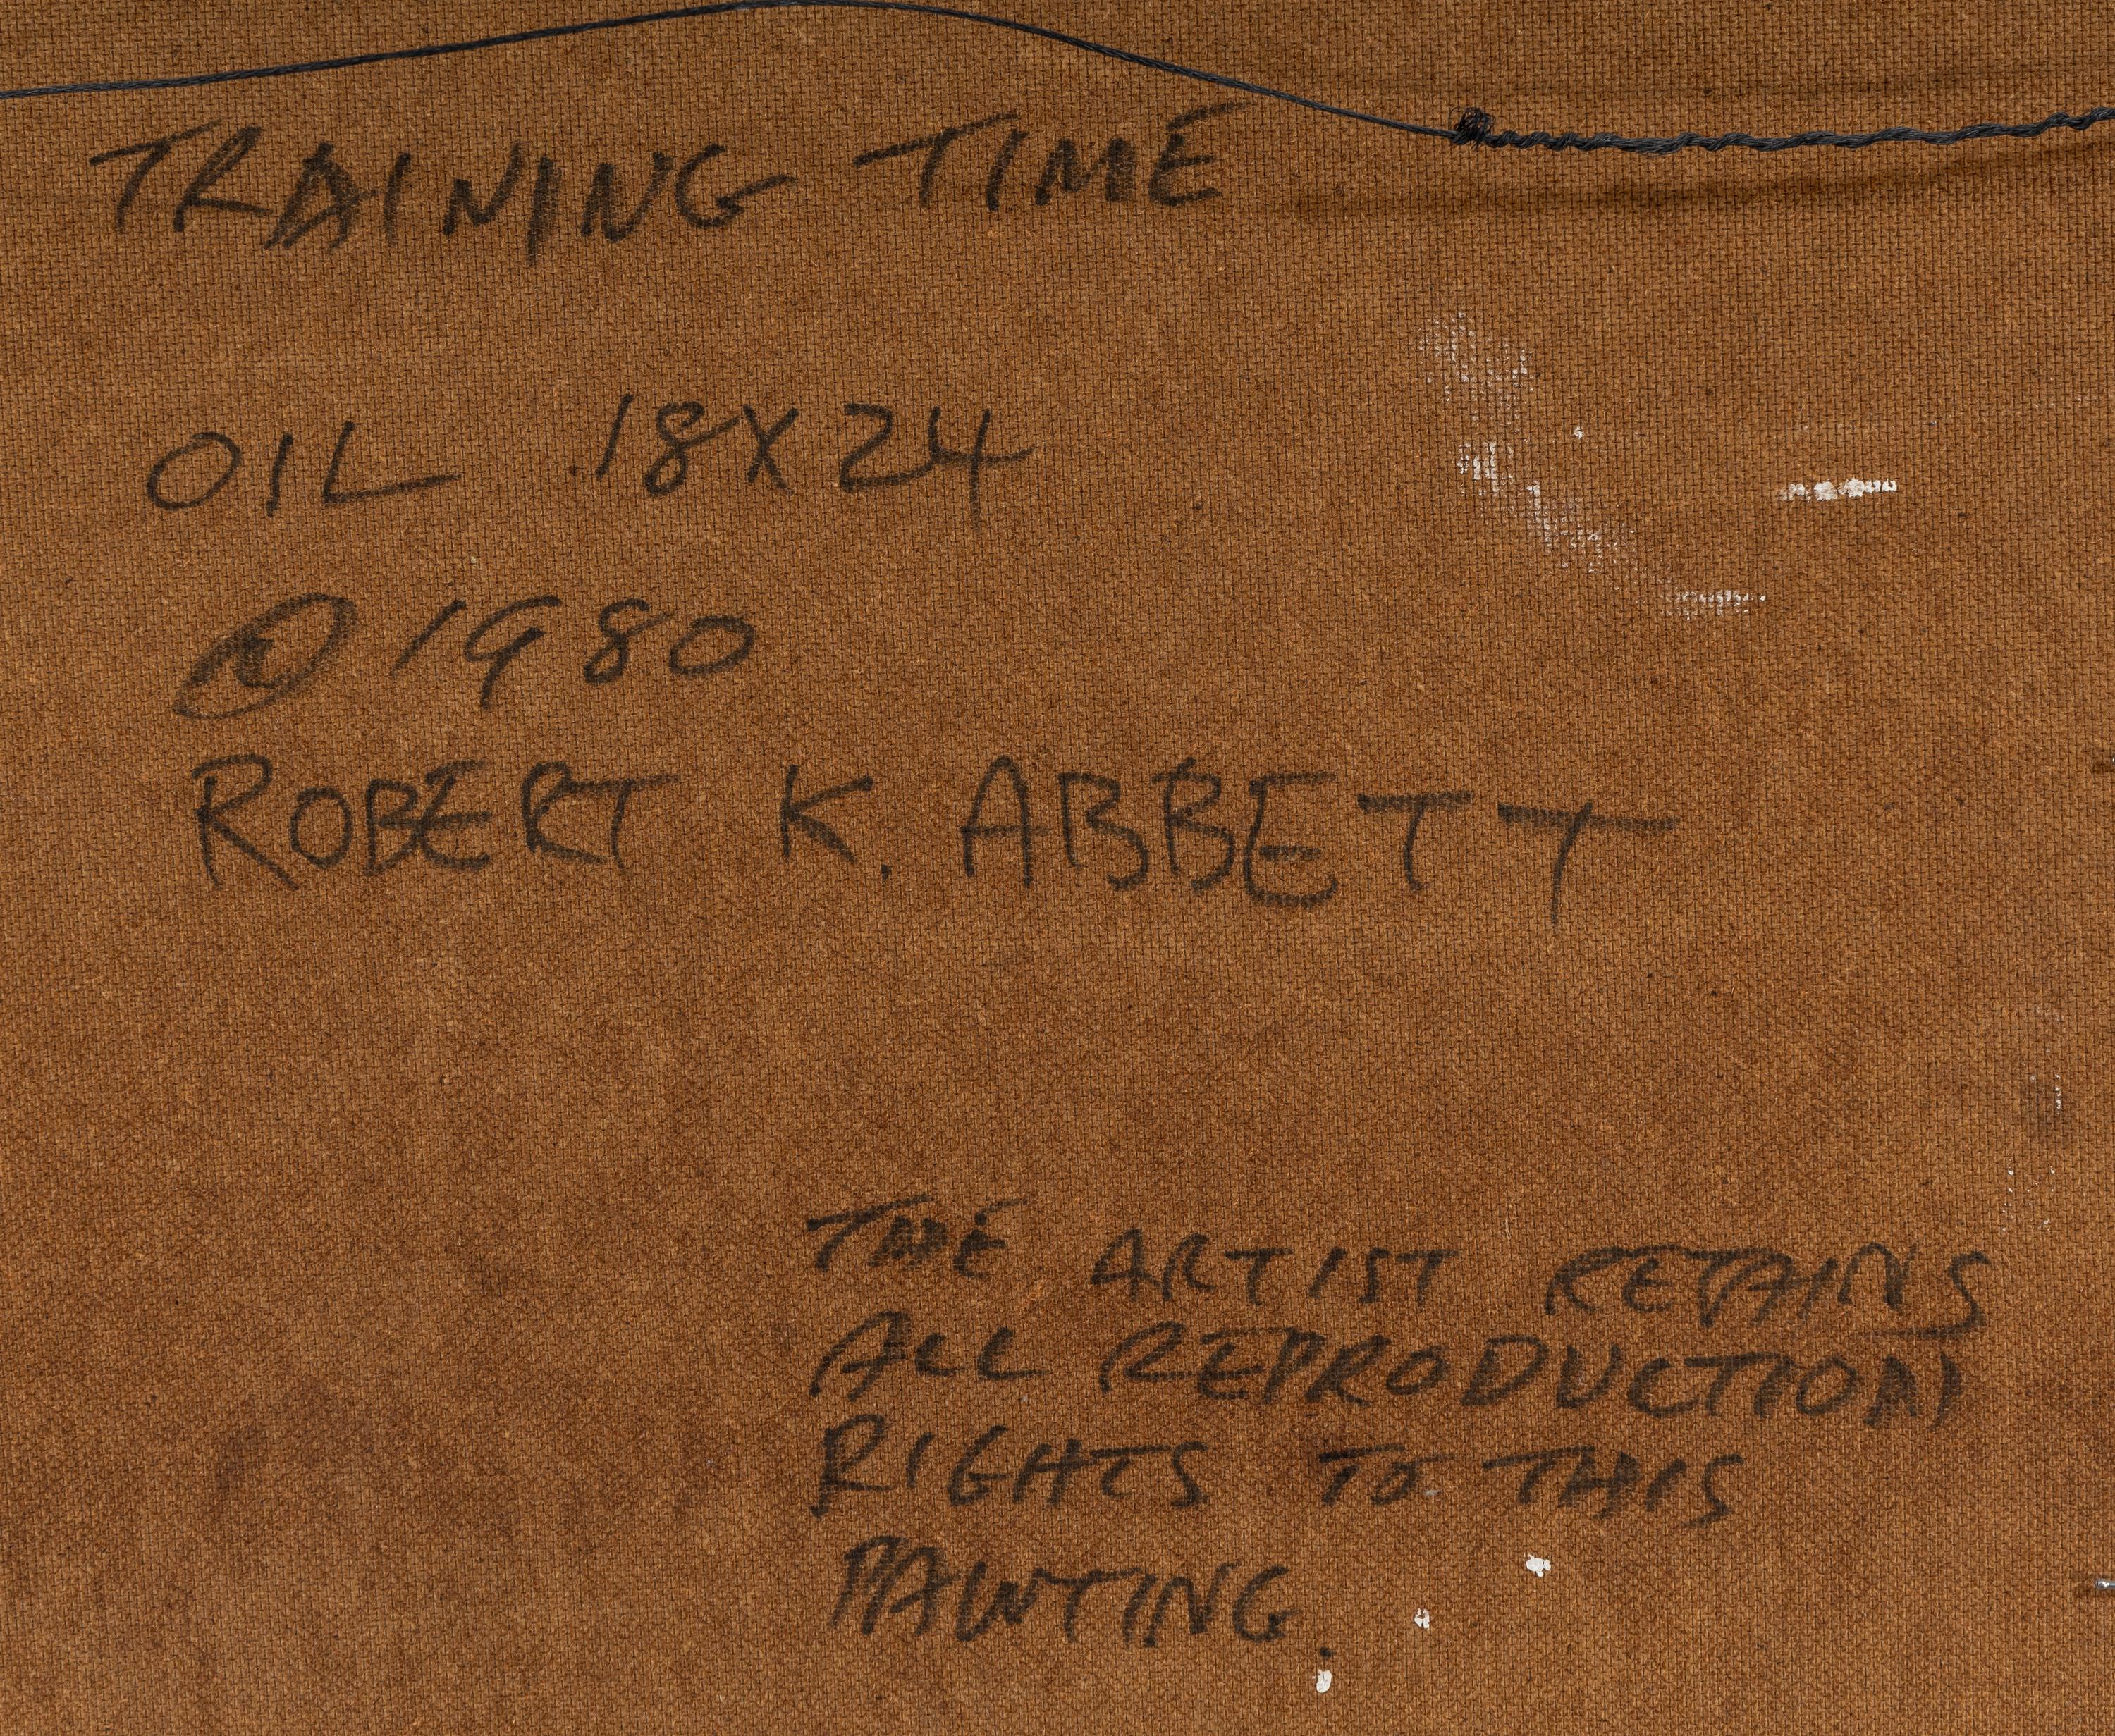 TRAINING TIME
OIL 18X24
© 1980
ROBERT K. ABBETT
THE ARTIST RETAINS
ALL REPRODUCTION
RIGHTS TO THIS
PAINTING.